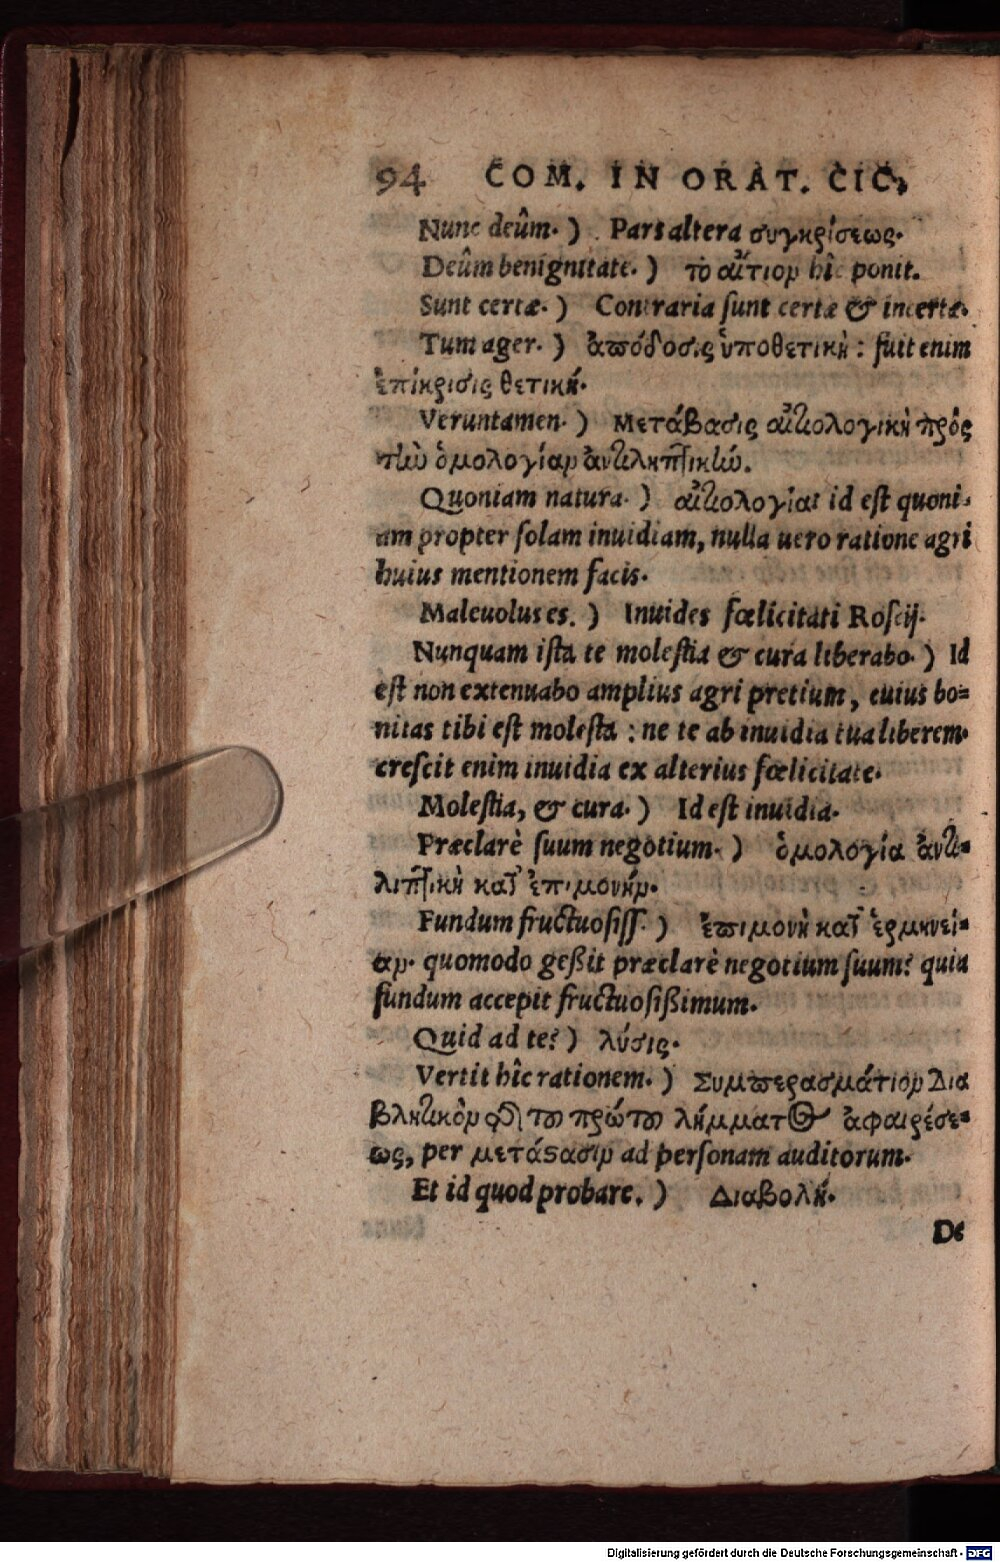 94 COM. IN ORAT. CIC,
Nunc deûm. ) Pars altera συγκρίσεως.
Deûm benignitate. ) τὸ αἴτιον hîc ponit.
Sunt certæ. ) Contraria sunt certæ & incertæ.
Tum ager. ) ἀπόδοσις ὑποθετικὴ : fuit enim
ἐπίκρισις θετική.
Veruntamen. ) Μετάβασις αἰτιολογικὴ πρὸς
τὴν ὁμολογίαν ἀντιληπτικήν.
Quoniam natura. ) αἰτιολογία: id est quoni-
am propter solam inuidiam, nulla uero ratione agri
huius mentionem facis.
Maleuolus es. ) Inuides fœlicitati Roscij.
Nunquam ista te molestia & cura liberabo. ) Id
est non extenuabo amplius agri pretium, cuius bo-
nitas tibi est molesta : ne te ab inuidia tua liberem.
crescit enim inuidia ex alterius fœlicitate.
Molestia, & cura. ) Id est inuidia.
Præclarè suum negotium. ) ὁμολογία ἀντι-
λιπτικὴ κατ' ἐπιμονήν.
Fundum fructuosiss. ) ἐπιμονὴ κατ' ἑρμηνεί-
αν. quomodo geßit præclarè negotium suum? quia
fundum accepit fructuosißimum.
Quid ad te? ) λύσις.
Vertit hîc rationem. ) Συμπερασμάτιον Δια
βλητικὸν τοῦ πρώτου λήμματος ἀφαιρέσε-
ως, per μετάστασιν ad personam auditorum.
Et id quod probare. ) Διαβολή.
De
Digitalisierung gefördert durch die Deutsche Forschungsgemeinschaft - DFG